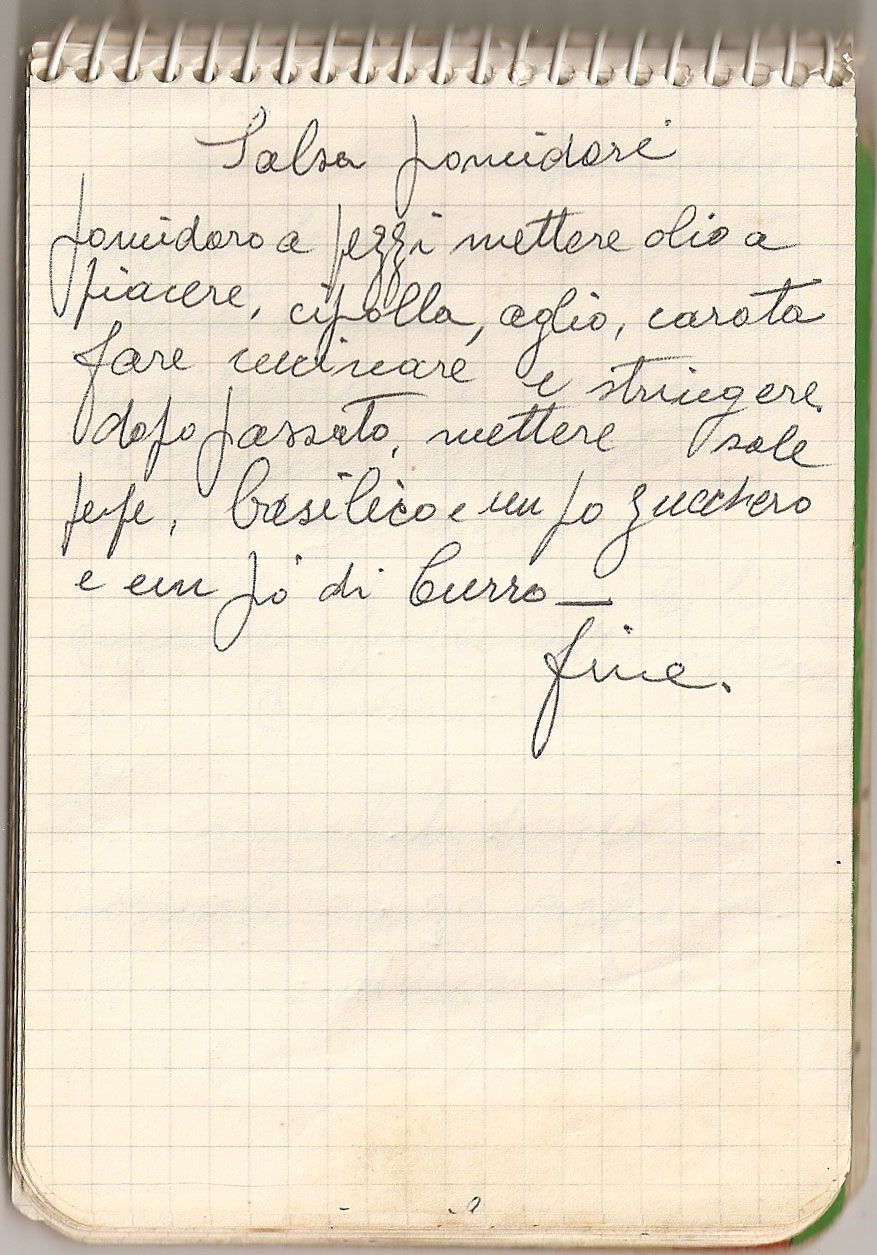 Salsa pomidori
pomidoro a pezzi mettere olio a
piacere, cipolla, aglio, carota
fare cucinare e stringere
dopo passato, mettere sale
pepe, basilico e un po zucchero
e un pò di burro —
fine.